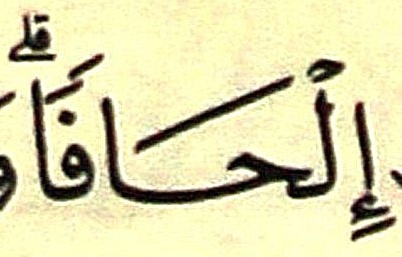 إِلْحَافًاۗ